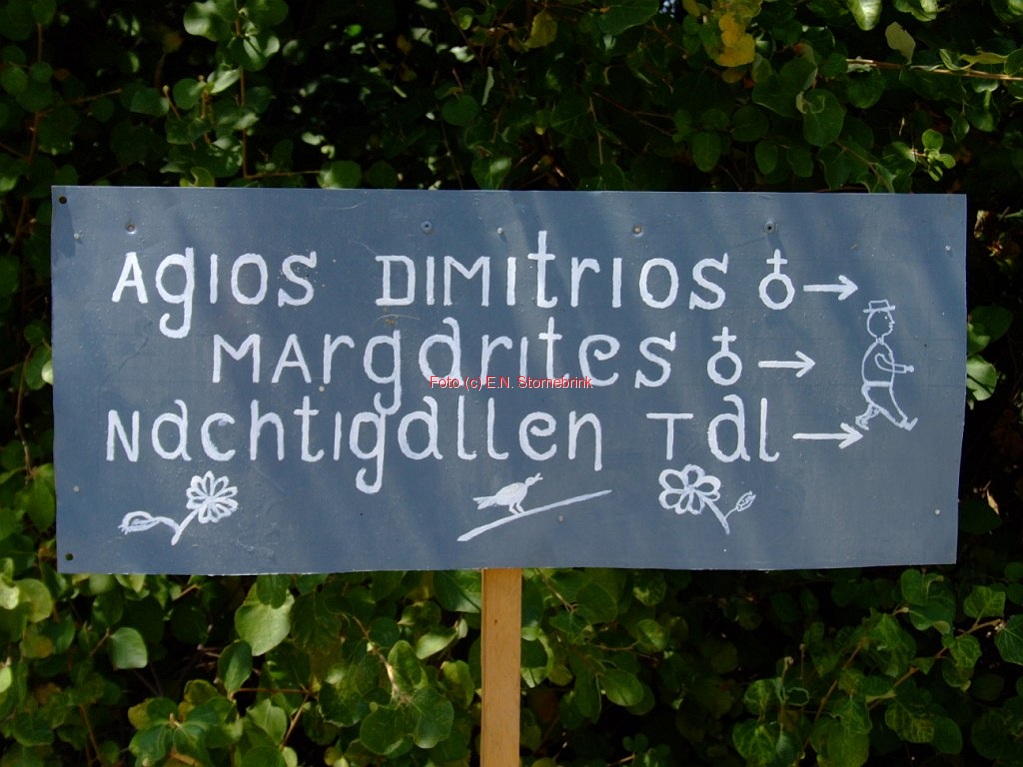 Agios Dimitrios ♁→
Margarites ♁→
Foto (c) E.N. Stornebrink
Nachtigallen Tal →